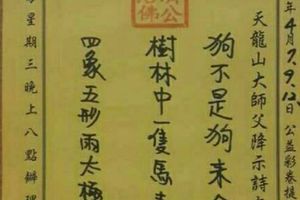 年4月7.9.12日公益彩券提
天龍山大師父降示詩
狗不是狗來
樹林中一隻馬
四象五形兩太極
每星期三晚上八點辦理
濟公活佛